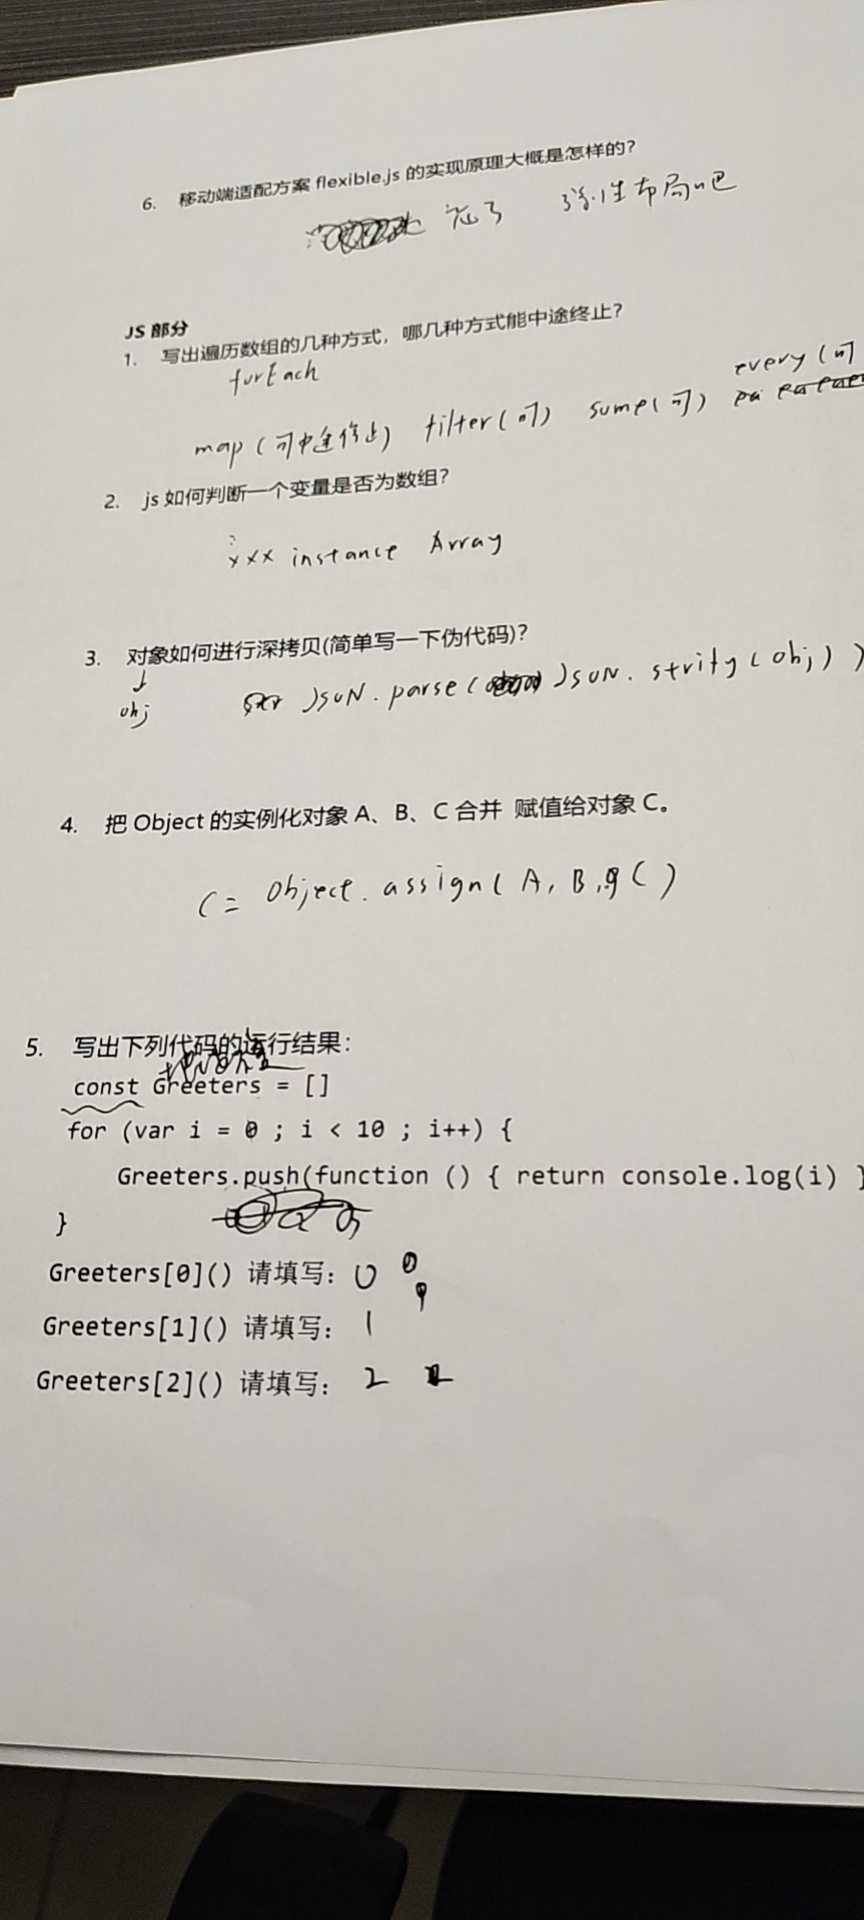 6. 移动端适配方案 flexible.js 的实现原理大概是怎样的?
忘了 弹性布局吧
JS 部分
1. 写出遍历数组的几种方式，哪几种方式能中途终止?
forEach
map (可中途停止) filter (可) some (可) every (可
2. js 如何判断一个变量是否为数组?
xxx instance Array
3. 对象如何进行深拷贝(简单写一下伪代码)?
↓
obj JSON.parse( JSON.strify(obj))
4. 把 Object 的实例化对象 A、B、C 合并 赋值给对象 C。
C = Object.assign( A, B, C )
5. 写出下列代码的运行结果:
const Greeters = []
for (var i = 0 ; i < 10 ; i++) {
Greeters.push(function () { return console.log(i) }
}
Greeters[0]() 请填写: 0 0
Greeters[1]() 请填写: 1
Greeters[2]() 请填写: 2